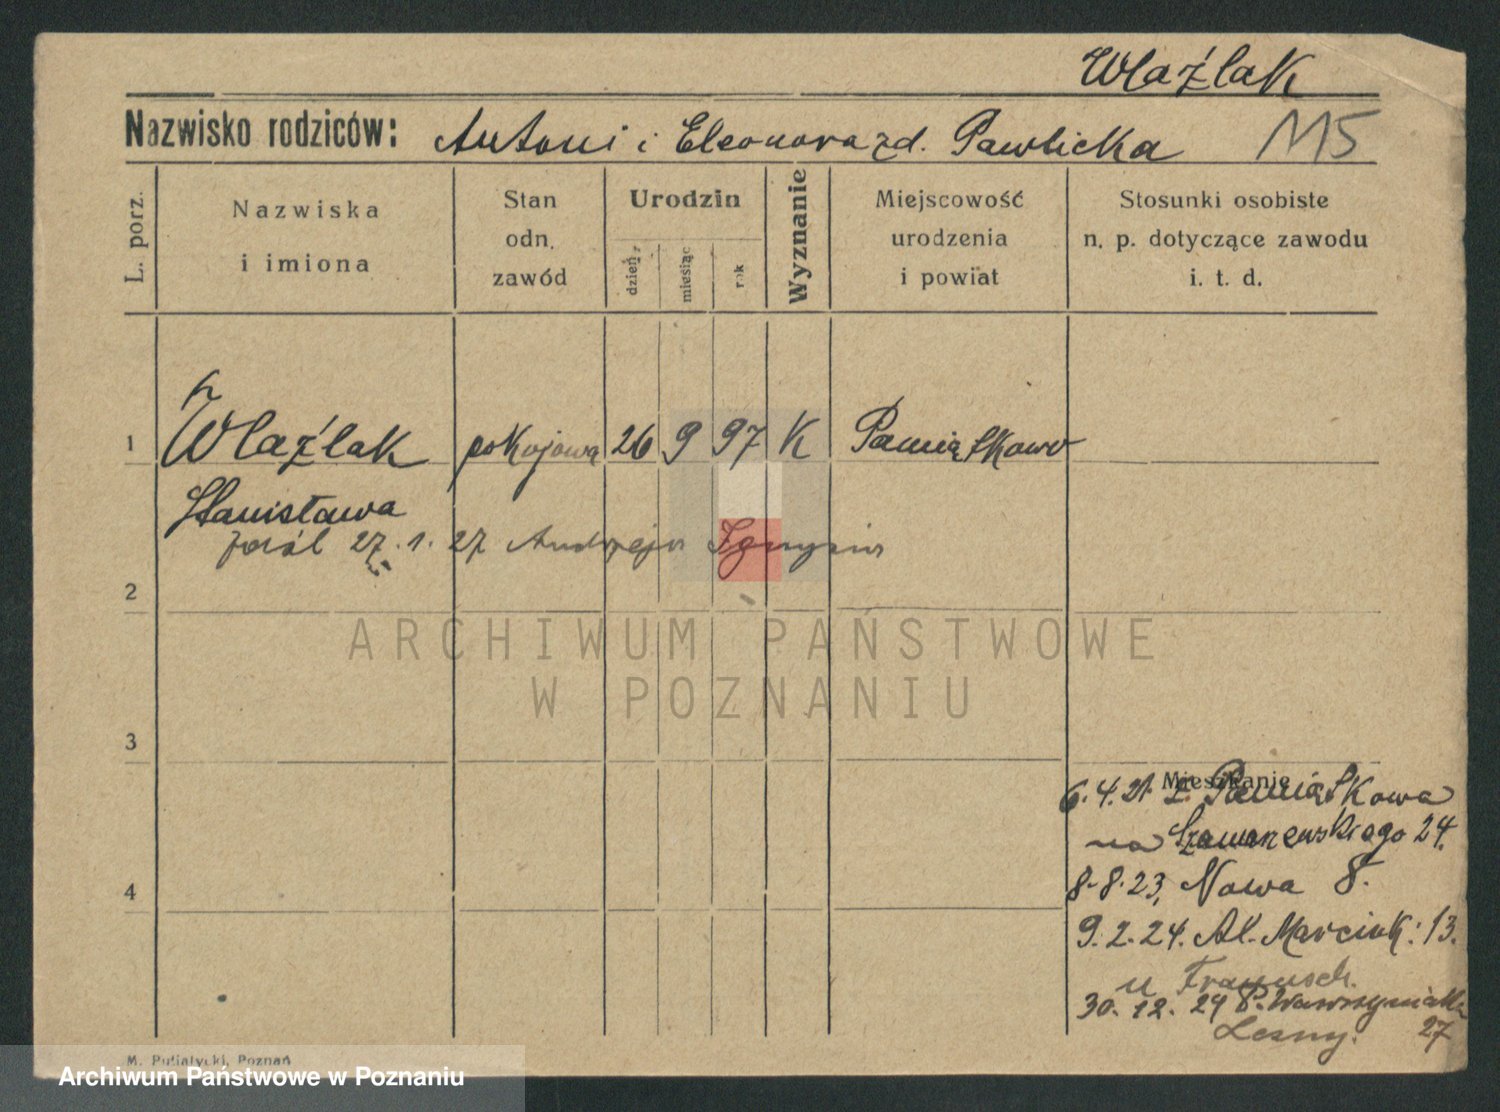 Wlaźlak
Nazwisko rodziców: Antoni i Eleonora zd. Pawlicka 115
L. porz.
Nazwiska
i imiona
Stan
odn.
zawód
Urodzin
dzień
miesiąc
rok
Wyznanie
Miejscowość
urodzenia
i powiat
Stosunki osobiste
n. p. dotyczące zawodu
i. t. d.
1 Wlaźlak pokojowa 26 9 97 K Pamiątkowo
Stanisława
27. 1. 27 Andrzeja
2
ARCHIWUM PAŃSTWOWE
W POZNANIU
3
Mieszkanie
6. 4. 21 z Pamiątkowa
na 24.
4
8. 8. 23, Nowa 8.
9. 2. 24. Al. Marcink: 13.
u
30. 12. 24 P. Wawrzyniaka
27
M. Putiatycki, Poznań
Archiwum Państwowe w Poznaniu